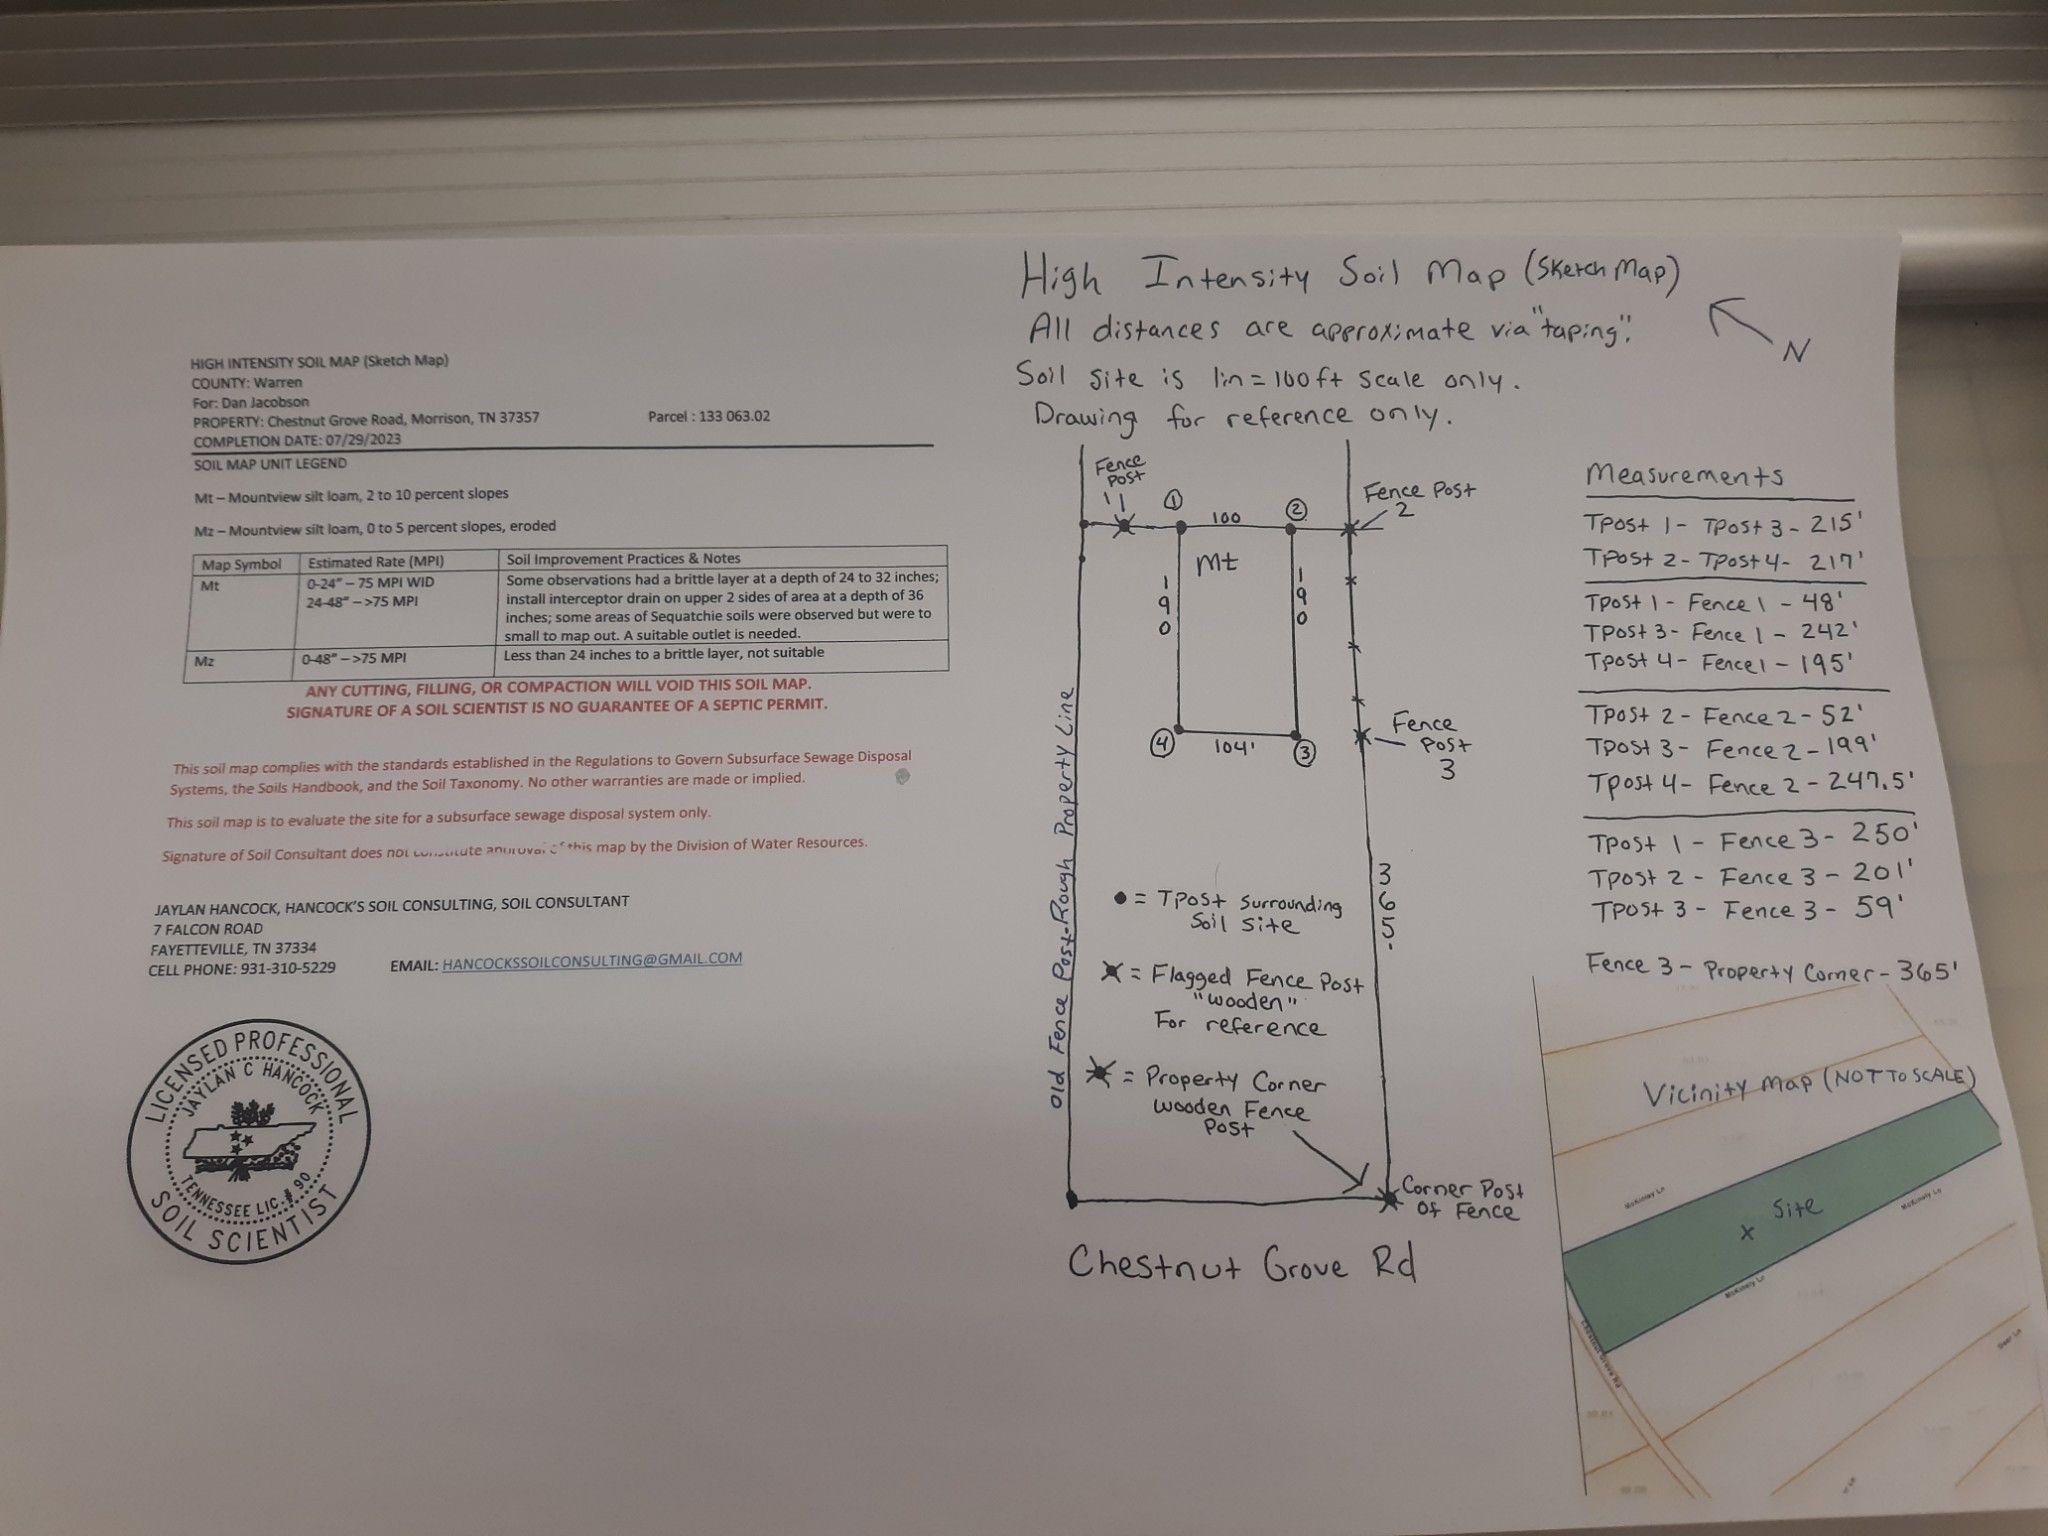 HIGH INTENSITY SOIL MAP (Sketch Map)
COUNTY: Warren
For: Dan Jacobson
PROPERTY: Chestnut Grove Road, Morrison, TN 37357 Parcel : 133 063.02
COMPLETION DATE: 07/29/2023
SOIL MAP UNIT LEGEND
Mt – Mountview silt loam, 2 to 10 percent slopes
Mz – Mountview silt loam, 0 to 5 percent slopes, eroded
Map Symbol Estimated Rate (MPI) Soil Improvement Practices & Notes
Mt 0-24" – 75 MPI WID Some observations had a brittle layer at a depth of 24 to 32 inches;
24-48" – >75 MPI install interceptor drain on upper 2 sides of area at a depth of 36
inches; some areas of Sequatchie soils were observed but were to
small to map out. A suitable outlet is needed.
Mz 0-48" – >75 MPI Less than 24 inches to a brittle layer, not suitable
ANY CUTTING, FILLING, OR COMPACTION WILL VOID THIS SOIL MAP.
SIGNATURE OF A SOIL SCIENTIST IS NO GUARANTEE OF A SEPTIC PERMIT.
This soil map complies with the standards established in the Regulations to Govern Subsurface Sewage Disposal
Systems, the Soils Handbook, and the Soil Taxonomy. No other warranties are made or implied.
This soil map is to evaluate the site for a subsurface sewage disposal system only.
Signature of Soil Consultant does not constitute approval of this map by the Division of Water Resources.
JAYLAN HANCOCK, HANCOCK'S SOIL CONSULTING, SOIL CONSULTANT
7 FALCON ROAD
FAYETTEVILLE, TN 37334
CELL PHONE: 931-310-5229 EMAIL: HANCOCKSSOILCONSULTING@GMAIL.COM
LICENSED PROFESSIONAL
JAYLAN C HANCOCK
TENNESSEE LIC.# 90
SOIL SCIENTIST
High Intensity Soil Map (Sketch Map)
All distances are approximate via "taping".
N
Soil site is 1in = 100ft scale only.
Drawing for reference only.
Fence
Post
1
1
100
2
Fence Post
2
Mt
190
190
4
104'
3
Fence
Post
3
Old Fence Post-Rough Property Line
365'
= TPost Surrounding
Soil Site
= Flagged Fence Post
"wooden"
For reference
= Property Corner
Wooden Fence
Post
Corner Post
Of Fence
Chestnut Grove Rd
Measurements
TPost 1 - TPost 3 - 215'
TPost 2 - TPost 4 - 217'
TPost 1 - Fence 1 - 48'
TPost 3 - Fence 1 - 242'
TPost 4 - Fence 1 - 195'
TPost 2 - Fence 2 - 52'
TPost 3 - Fence 2 - 199'
TPost 4 - Fence 2 - 247.5'
TPost 1 - Fence 3 - 250'
TPost 2 - Fence 3 - 201'
TPost 3 - Fence 3 - 59'
Fence 3 - Property Corner - 365'
Vicinity Map (NOT TO SCALE)
McKinley Ln
McKinely Ln
x Site
McKinely Ln
Chestnut Grove Rd
Deer Ln